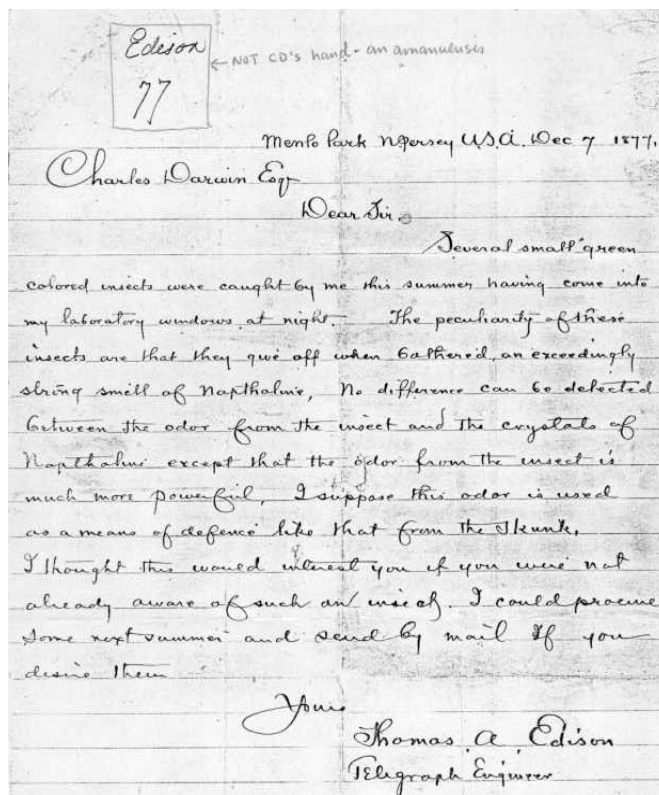 Edison
77
← NOT CD's hand - an amanuensis
Menlo Park N Jersey U.S.A. Dec 7 1877.
Charles Darwin Esqr
Dear Sir.
Several small green
colored insects were caught by me this summer having come into
my laboratory windows at night. The peculiarity of these
insects are that they give off when bothered, an exceedingly
strong smell of Napthaline, No difference can be detected
between the odor from the insect and the crystals of
Napthaline except that the odor from the insect is
much more powerful, I suppose this odor is used
as a means of defence like that from the Skunk,
I thought this would interest you if you were not
already aware of such an insect. I could procure
some next summer and send by mail If you
desire them
Yours
Thomas A Edison
Telegraph Engineer